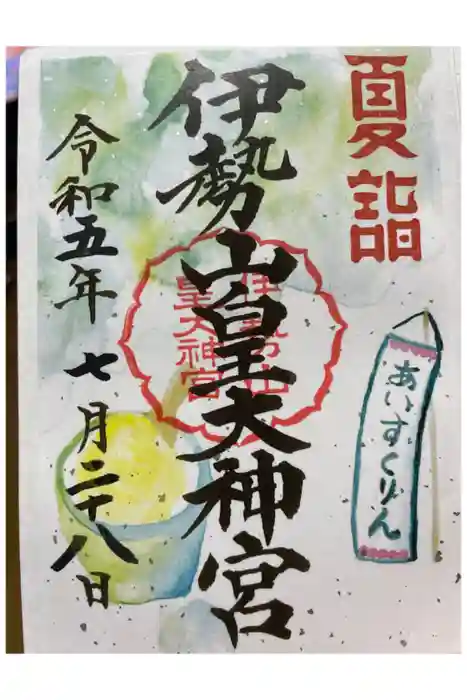 夏詣
伊勢山皇大神宮
伊勢山
皇大神宮
令和五年七月二十八日
あいすくりん